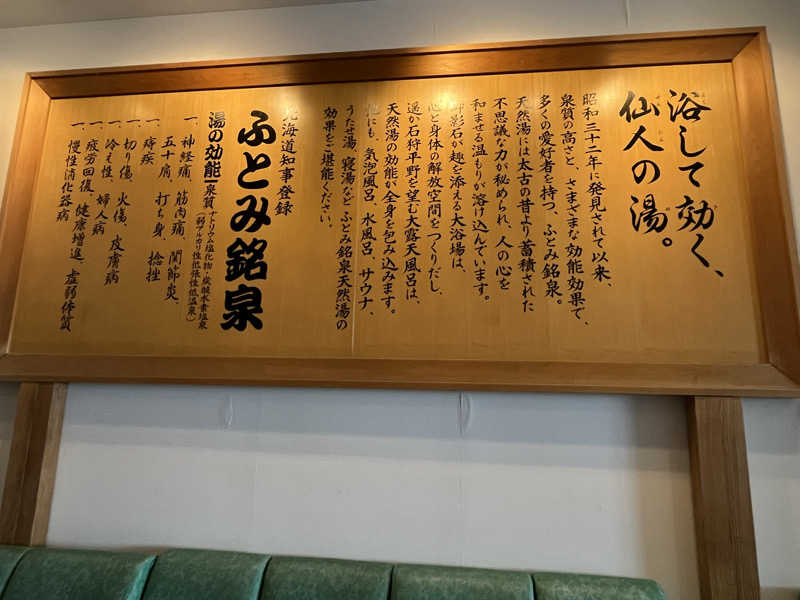 浴して効く、
仙人の湯。
昭和三十二年に発見されて以来、
泉質の高さと、さまざまな効能効果で、
多くの愛好者を持つ、ふとみ銘泉。
天然湯には太古の昔より蓄積された
不思議な力が秘められ、人の心を
和ませる温もりが溶け込んでいます。
御影石が趣を添える大浴場は、
心と身体の解放空間をつくりだし、
遥か石狩平野を望む大露天風呂は、
天然湯の効能が全身を包み込みます。
他にも、気泡風呂、水風呂、サウナ、
うたせ湯、寝湯など ふとみ銘泉天然湯の
効果をご堪能ください。
北海道知事登録
ふとみ銘泉
湯の効能
泉質 ナトリウム塩化物・炭酸水素塩泉
(弱アルカリ性低張性低温泉)
一、神経痛、筋肉痛、関節炎
五十肩、打ち身、捻挫
一、痔疾
一、切り傷、火傷、皮膚病
一、冷え性、婦人病
一、疲労回復、健康増進、虚弱体質
一、慢性消化器病